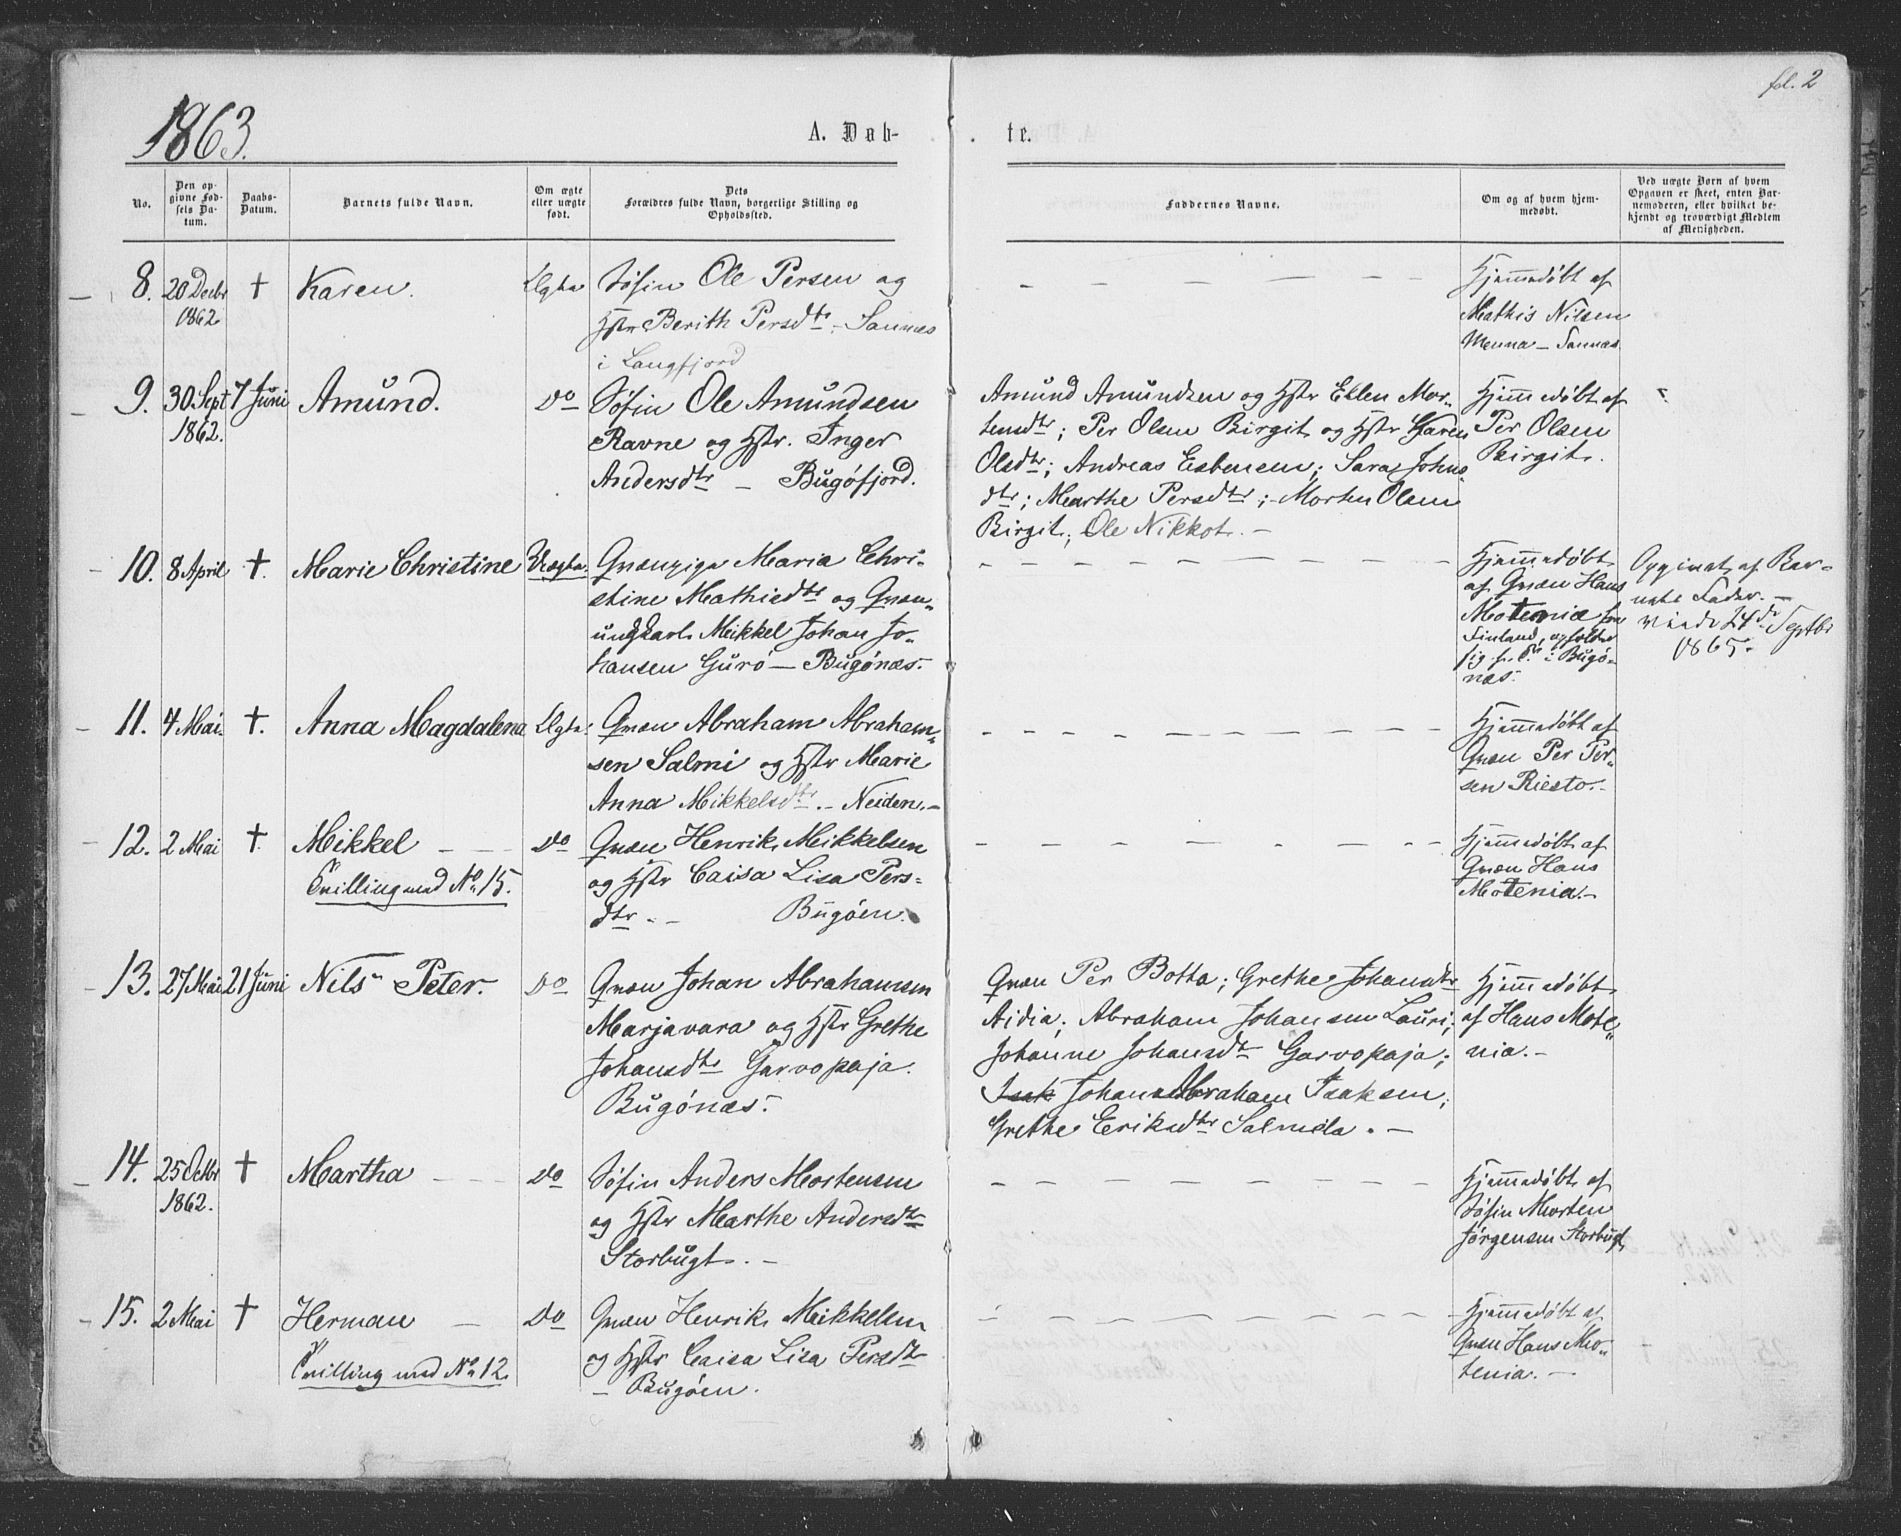 fol. 2
1863.
A. Døb-
te.
No.
Den op-
givne Fød-
sels Da-
tum.
Daabs-
Datum.
Barnets fulde Navn.
Om ægte
eller uægte
født.
Dets
Forældres fulde Navn, borgerlige Stilling og
Opholdssted.
Faddernes Navne.
Om og af hvem hjem-
medøbt.
Ved uægte Børn af hvem
Opgaven er skeet, enten Bar-
nemoderen, eller hvilket be-
kjendt og troværdigt Medlem
af Menigheden.
8.
20 Decbr
1862.
†
Karen.
Ægte
Søfin Ole Persen og
Hstr Berith Persdtr - Sannes
i Langfjord
Hjemmedøbt af
Mathis Nilsen
Menna - Sannes.
9.
30 Sept
1862.
7 Juni
Amund.
Do
Søfin Ole Amundsen
Ravne og Hstr. Inger
Andersdtr - Bugøfjord.
Amund Amundsen og Hstr Ellen Mor-
tensdtr; Per Olsen Birgit og Hstr Karen
Olsdtr; Andreas Esbensen; Sara Johns
dtr; Marthe Persdtr; Morten Olsen
Birgit; Ole Nikkot. -
Hjemmedøbt af
Per Olsen
Birgit.
10.
8 April
†.
Marie Christine
Uægte
Qvænpige Maria Chri-
stine Mathisdtr og Qvæn-
ungkarl Mikkel Johan Jo-
hansen Guro - Bugønæs.
Hjemmedøbt
af Qvæn Hans
Motenia fra
Finland, opholder
sig p. t. i Bugø-
næs.
Opgivet af Bar-
nets Fader. -
viede 24de Septbr
1865.
11.
4 Mai
†.
Anna Magdalena
Ægte
Qvæn Abraham Abraham-
sen Salmi og Hstr Marie
Anna Mikkelsdtr. - Neiden. -
Hjemmedøbt af
Qvæn Per Per-
sen Riesto. -
12.
2 Mai
†
Mikkel
Tvilling med No 15.
Do
Qvæn Henrik Mikkelsen
og Hstr Caisa Lisa Pers-
dtr. - Bugøen.
Hjemmedøbt af
Qvæn Hans
Motenia. -
13.
27 Mai
21 Juni
Nils Peter.
Do
Qvæn Johan Abrahamsen
Marjavara og Hstr Grethe
Johansdtr Garvopaja.
Bugønæs.
Qvæn Per Botta; Grethe Johansdtr
Aidia; Abraham Johansen Lauri;
Johanne Johansdtr Garvopaja;
Isak Johan Abraham Isaksen;
Grethe Eriksdtr Salmela. -
Hjemmedøbt
af Hans Mote-
nia. -
14.
25 Octbr
1862.
†
Martha
Do
Søfin Anders Mortensen
og Hstr Marthe Andersdtr
Storbugt. -
Hjemmedøbt af
Søfin Morten
Jørgensen Storbugt
15.
2 Mai
†
Herman
Tvilling med No 12.
Do
Qvæn Henrik Mikkelsen
og Hstr Caisa Lisa Persdtr
- Bugøen.
Hjemmedøbt af
Qvæn Hans Mo-
tenia. -